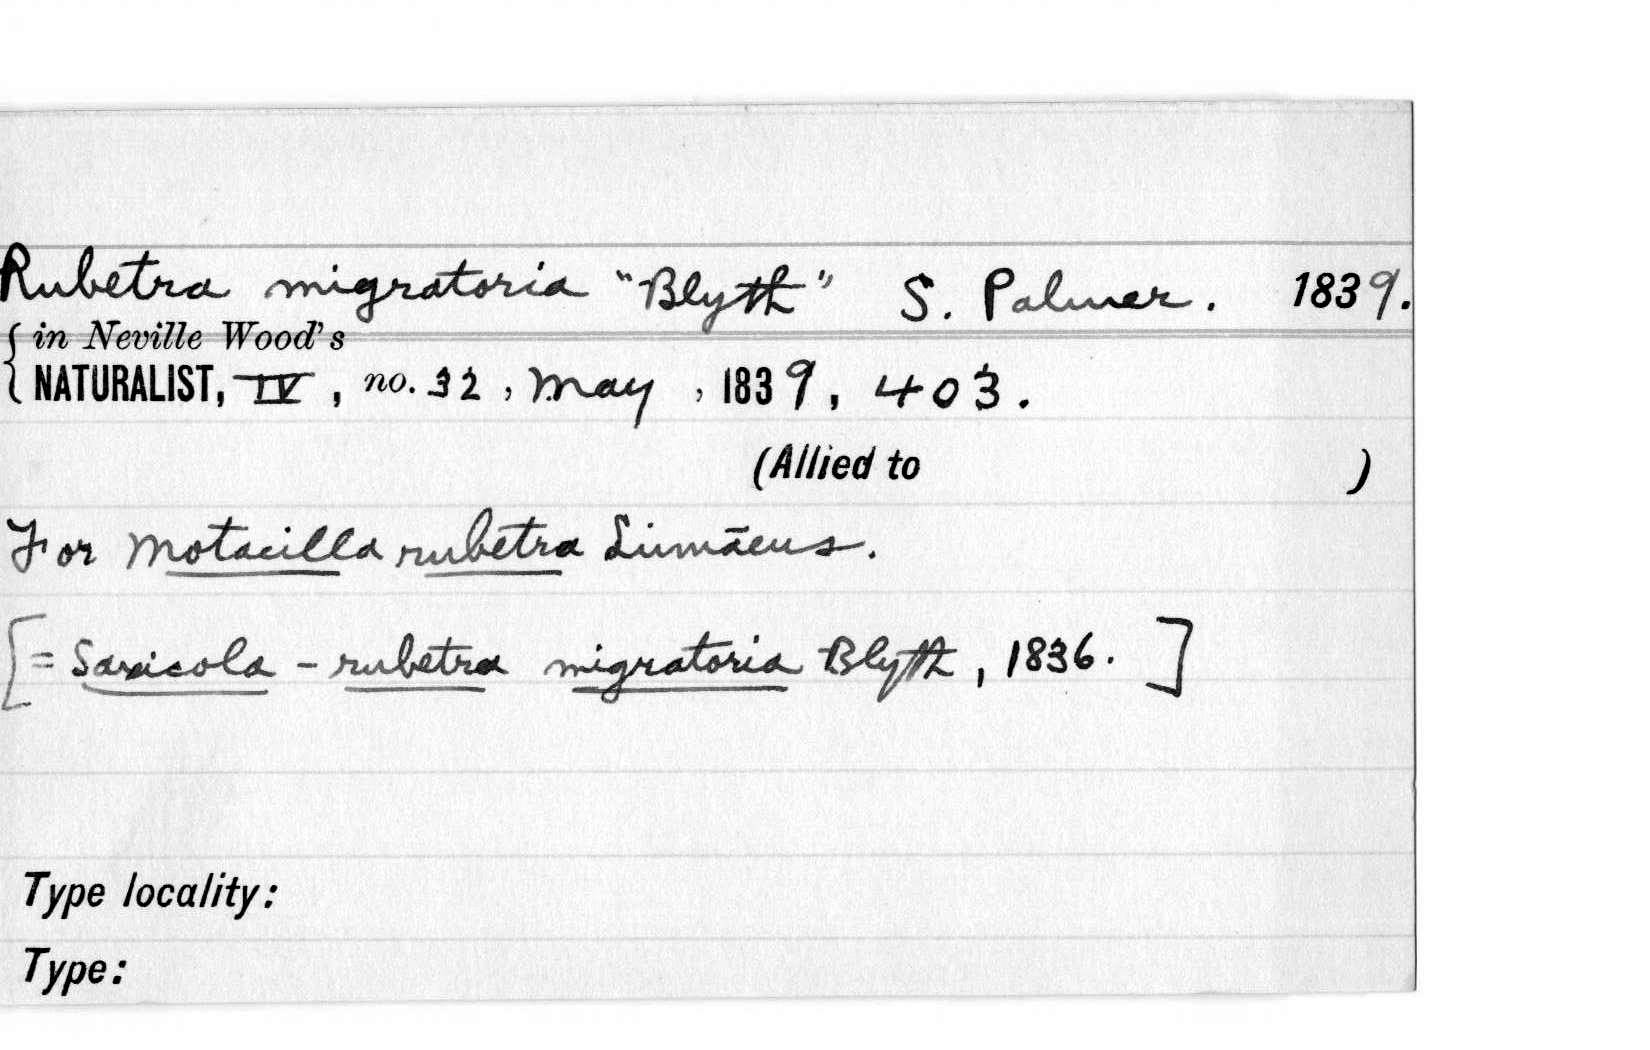 Rubetra migratoria "Blyth" S. Palmer. 1839.
{ in Neville Wood's
NATURALIST, IV, no. 32, May, 1839, 403.
(Allied to )
For Motacilla rubetra Linnaeus.
[= Saxicola - rubetra migratoria Blyth, 1836. ]
Type locality:
Type: